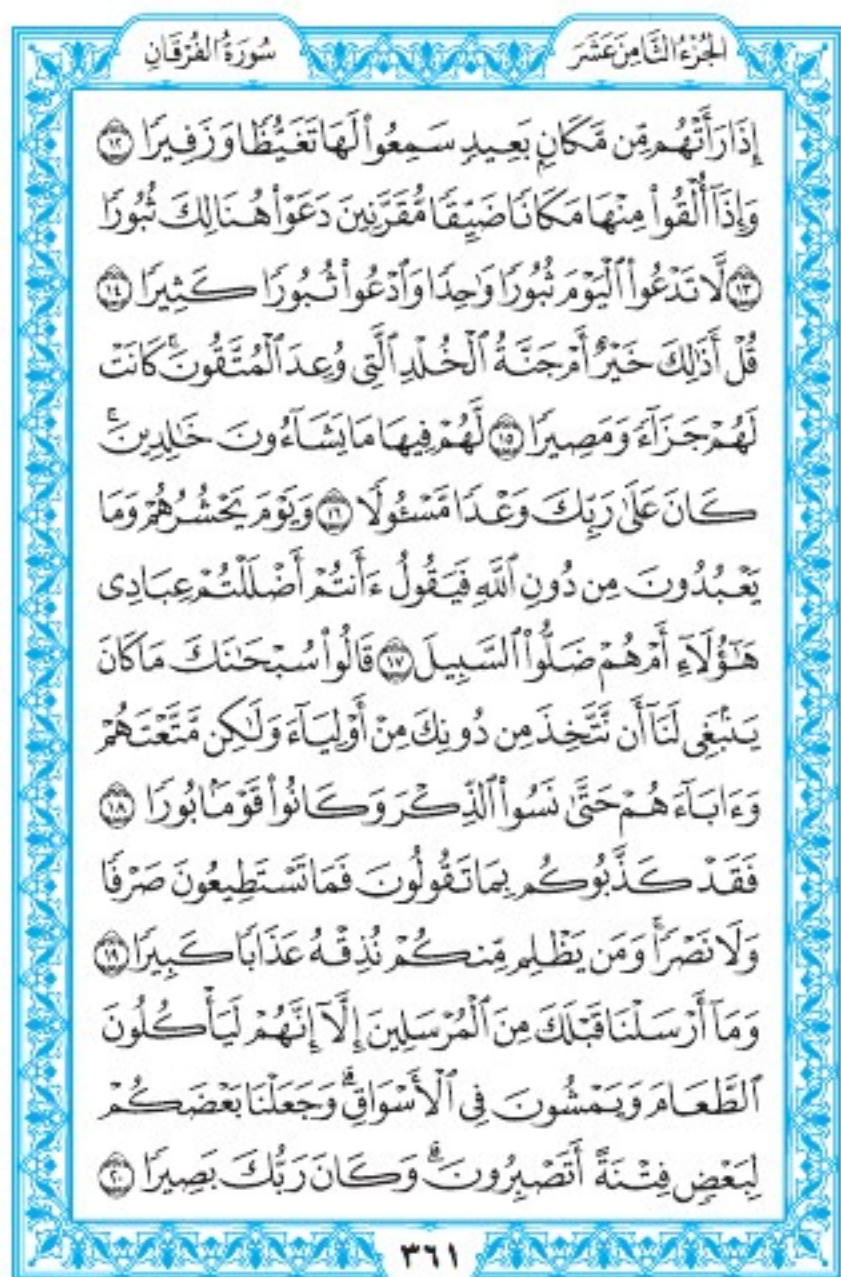 الجُزْءُ الثَّامِنَ عَشَرَ
سُورَةُ الفُرْقَانِ
إِذَا رَأَتْهُم مِّن مَّكَانٍۭ بَعِيدٍ سَمِعُوا۟ لَهَا تَغَيُّظًا وَزَفِيرًا ١٢
وَإِذَآ أُلْقُوا۟ مِنْهَا مَكَانًا ضَيِّقًا مُّقَرَّنِينَ دَعَوْا۟ هُنَالِكَ ثُبُورًا
١٣ لَّا تَدْعُوا۟ ٱلْيَوْمَ ثُبُورًا وَٰحِدًا وَٱدْعُوا۟ ثُبُورًا كَثِيرًا ١٤
قُلْ أَذَٰلِكَ خَيْرٌ أَمْ جَنَّةُ ٱلْخُلْدِ ٱلَّتِى وُعِدَ ٱلْمُتَّقُونَ ۚ كَانَتْ
لَهُمْ جَزَآءً وَمَصِيرًا ١٥ لَّهُمْ فِيهَا مَا يَشَآءُونَ خَٰلِدِينَ ۚ
كَانَ عَلَىٰ رَبِّكَ وَعْدًا مَّسْـُٔولًا ١٦ وَيَوْمَ يَحْشُرُهُمْ وَمَا
يَعْبُدُونَ مِن دُونِ ٱللَّهِ فَيَقُولُ ءَأَنتُمْ أَضْلَلْتُمْ عِبَادِى
هَٰٓؤُلَآءِ أَمْ هُمْ ضَلُّوا۟ ٱلسَّبِيلَ ١٧ قَالُوا۟ سُبْحَٰنَكَ مَا كَانَ
يَنۢبَغِى لَنَآ أَن نَّتَّخِذَ مِن دُونِكَ مِنْ أَوْلِيَآءَ وَلَٰكِن مَّتَّعْتَهُمْ
وَءَابَآءَهُمْ حَتَّىٰ نَسُوا۟ ٱلذِّكْرَ وَكَانُوا۟ قَوْمًۢا بُورًا ١٨
فَقَدْ كَذَّبُوكُم بِمَا تَقُولُونَ فَمَا تَسْتَطِيعُونَ صَرْفًا
وَلَا نَصْرًا ۚ وَمَن يَظْلِم مِّنكُمْ نُذِقْهُ عَذَابًا كَبِيرًا ١٩
وَمَآ أَرْسَلْنَا قَبْلَكَ مِنَ ٱلْمُرْسَلِينَ إِلَّآ إِنَّهُمْ لَيَأْكُلُونَ
ٱلطَّعَامَ وَيَمْشُونَ فِى ٱلْأَسْوَاقِ ۗ وَجَعَلْنَا بَعْضَكُمْ
لِبَعْضٍ فِتْنَةً أَتَصْبِرُونَ ۗ وَكَانَ رَبُّكَ بَصِيرًا ٢٠
٣٦١